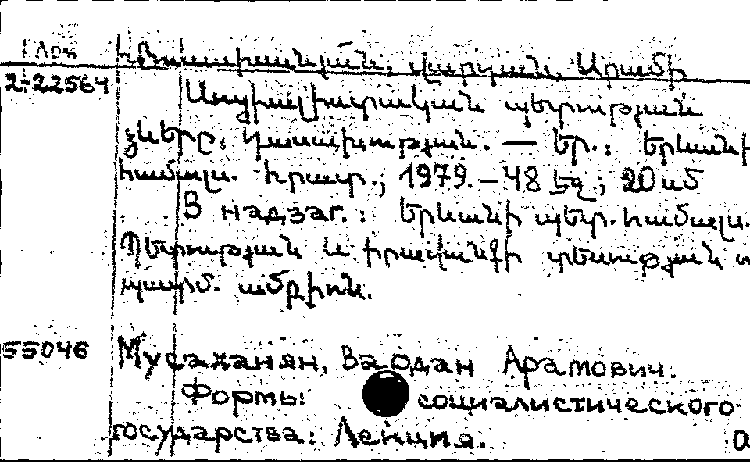 2-22564
Սոցիալիստական պետության
ձևերը: Դասախոսություն. — Եր.: Երևանի
համալս. հրատ., 1979. – 48 էջ; 20 սմ
В надзаг.: Երևանի պետ. համալս.
Պետության և իրավունքի տեսության
պատմ. ամբիոն.
55046 Мусаханян, Вардан Арамович.
Формы социалистического
государства: Лекция.